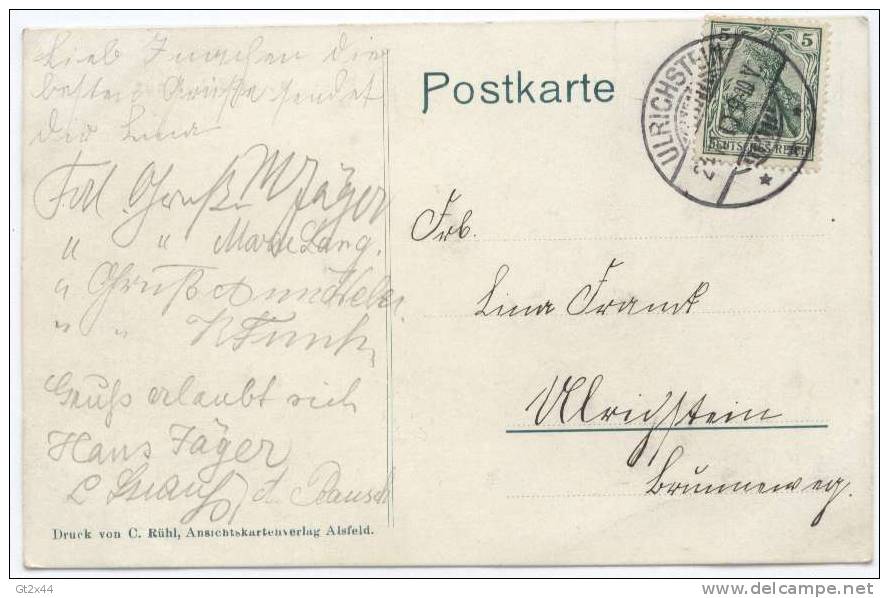 Lieb
die
besten Grüße sendet
die Lina
Frl. Gruß M Jäger
" " Marie Lang.
" Gruß
" " K Funk
Gruß erlaubt sich
Hans Jäger
L
Druck von C. Rühl, Ansichtskartenverlag Alsfeld.
Postkarte
5 5
DEUTSCHES REICH
ULRICHSTEIN
Frl.
Lina Frank
Ulrichstein
Brunneweg.
Gt2x44
www.delcampe.net